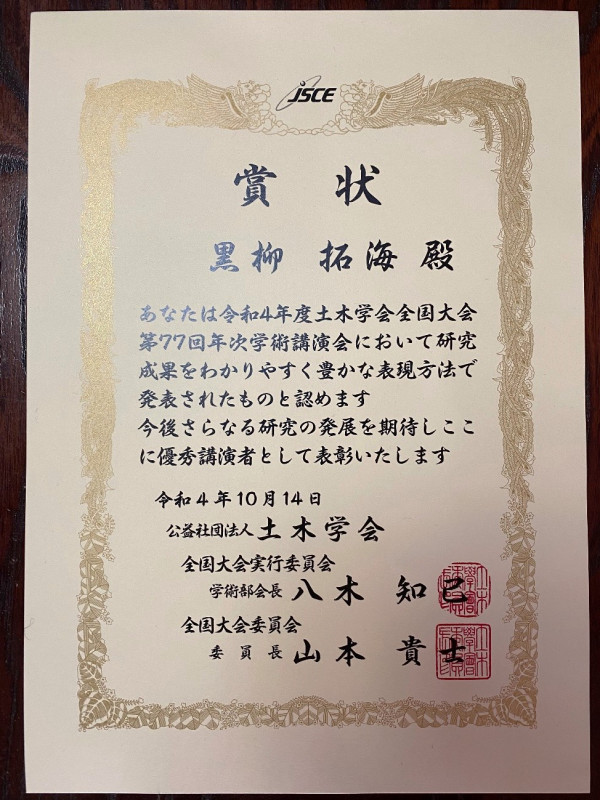 JSCE
賞 状
黒柳 拓海 殿
あなたは令和4年度土木学会全国大会
第77回年次学術講演会において研究
成果をわかりやすく豊かな表現方法で
発表されたものと認めます
今後さらなる研究の発展を期待しここ
に優秀講演者として表彰いたします
令和4年10月14日
公益社団法人 土木学会
全国大会実行委員会
学術部会長 八木 知己
全国大会委員会
委員長 山本 貴士